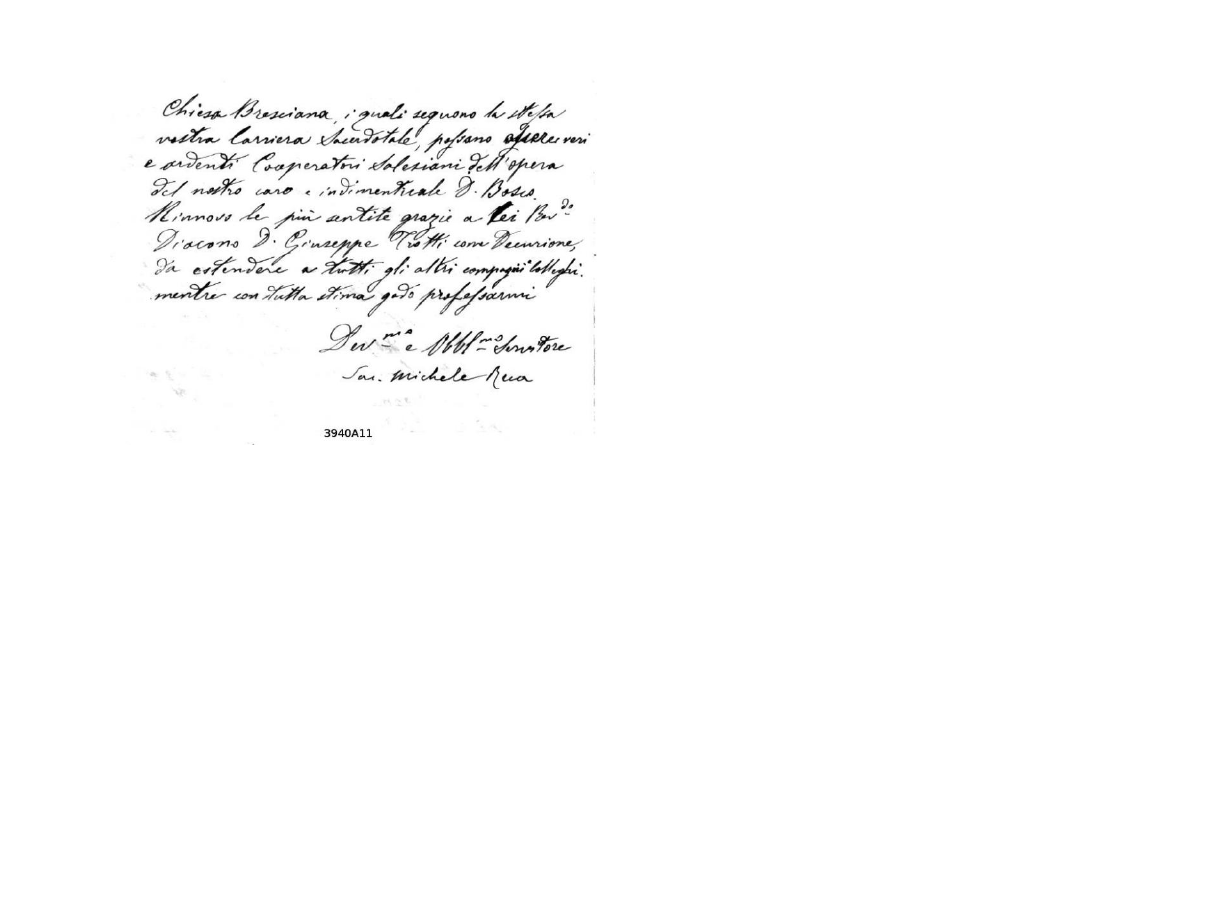 Chiesa Bresciana, i quali seguono la stessa
vostra Carriera Sacerdotale, possano essere veri
e ardenti Cooperatori Salesiani dell'opera
del nostro caro e indimenticale D. Bosco.
Rinnovo le più sentite grazie a Lei Rev.do
Diacono D. Giuseppe Trotti come Decurione,
da estendere a tutti gli altri compagni Colleghi.
mentre con tutta stima godo professarmi
Dev.mo e Obbl.mo Servitore
Sac. Michele Rua
3940A11